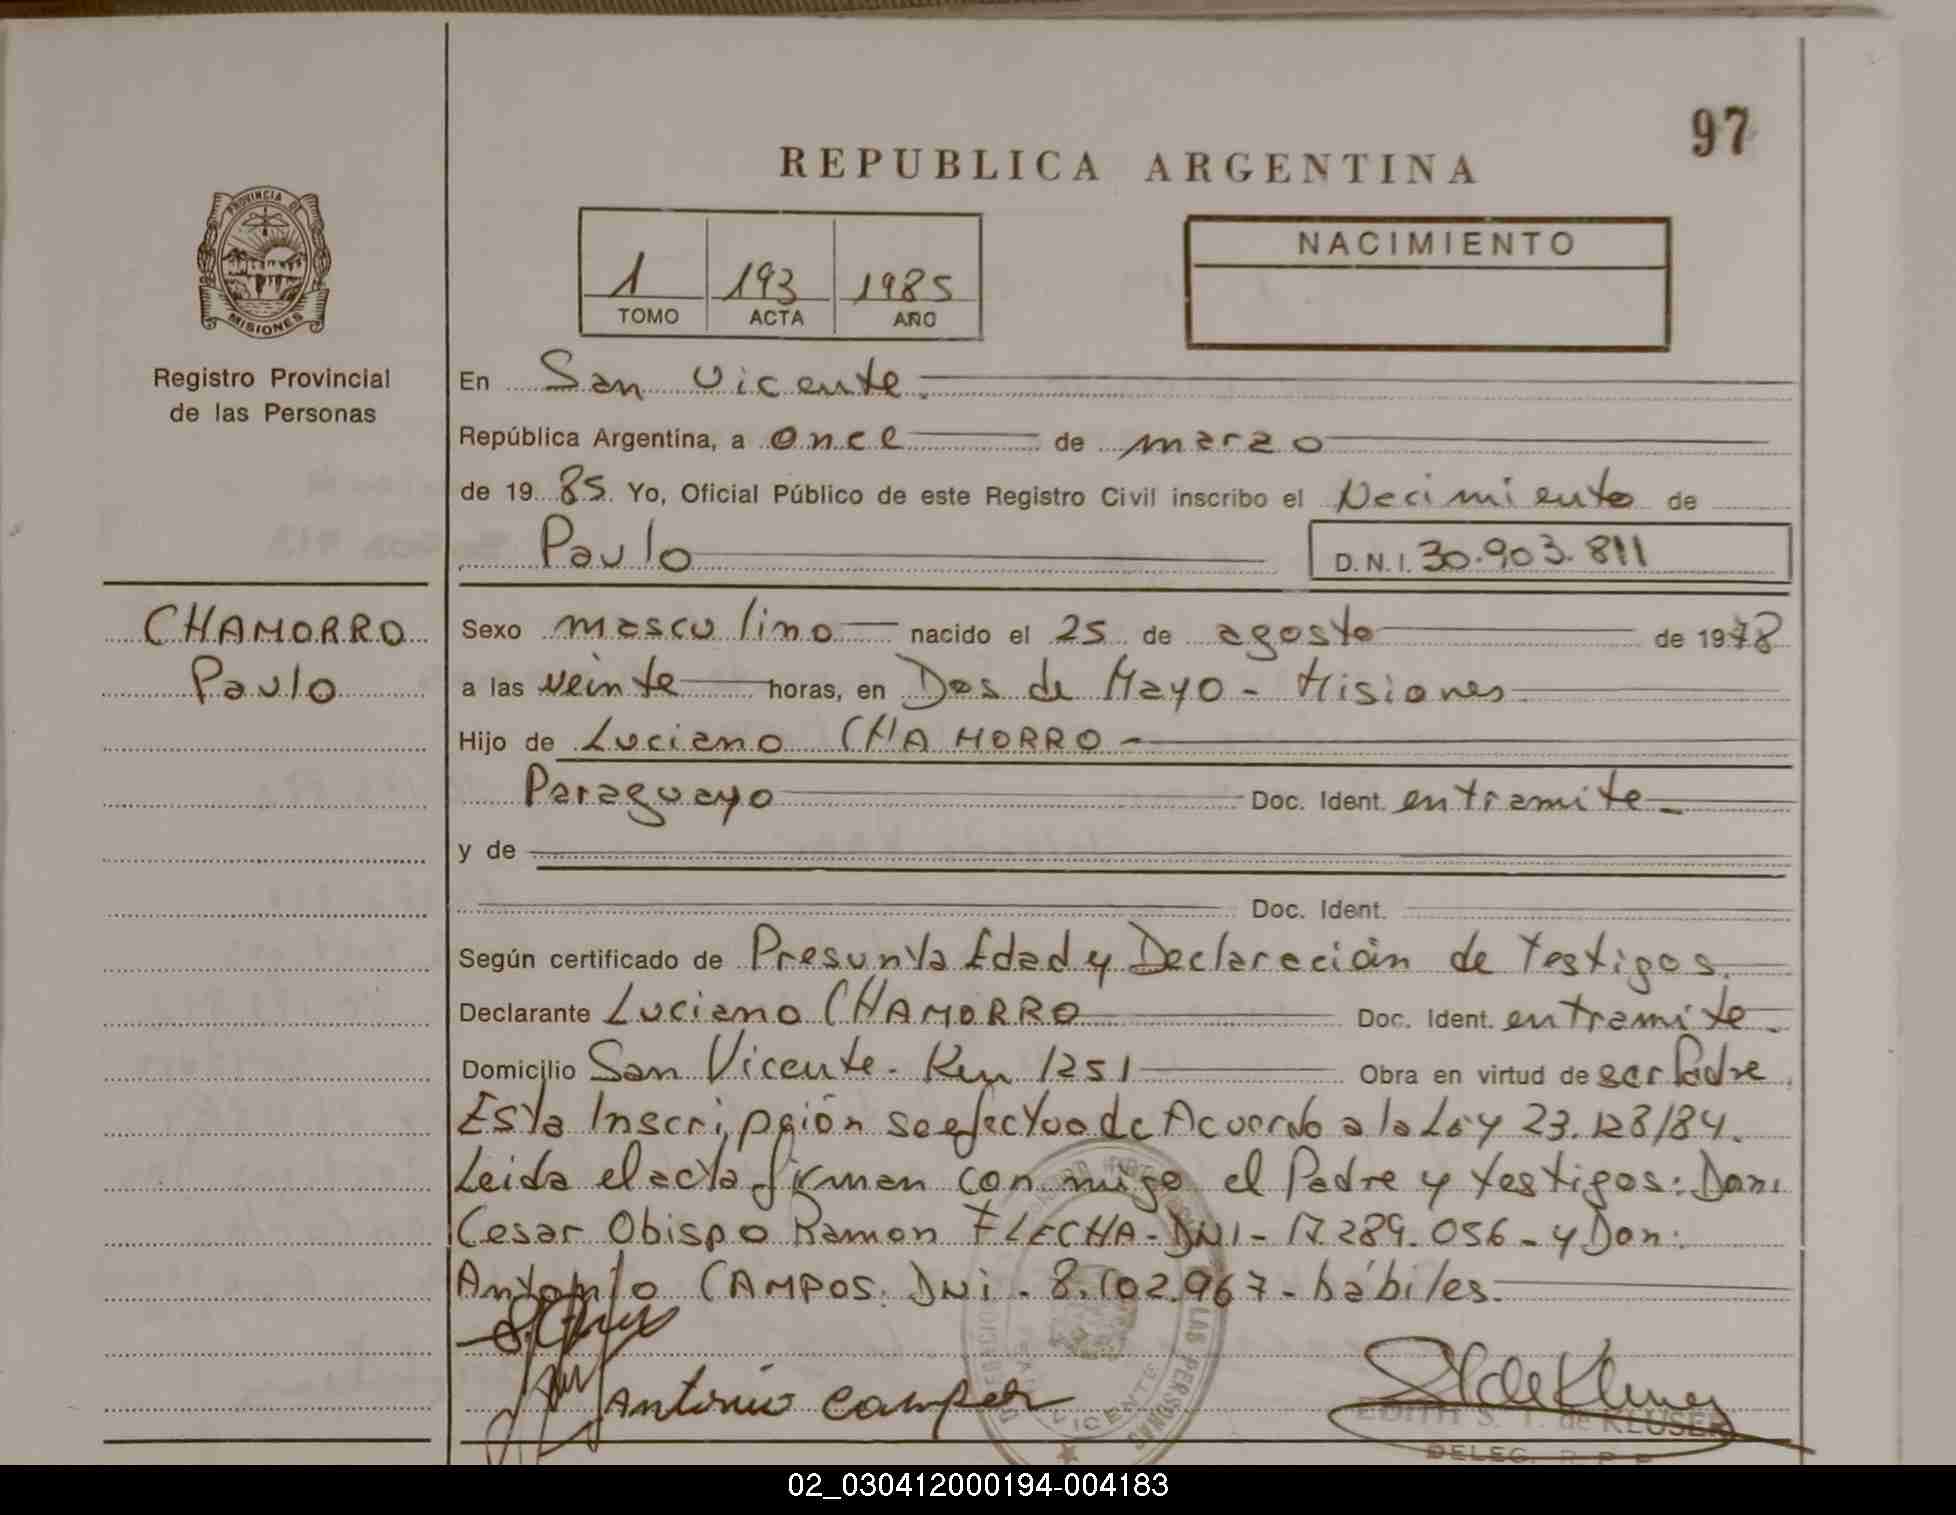 97
REPUBLICA ARGENTINA
PROVINCIA DE
MISIONES
Registro Provincial
de las Personas
1 193 1985
TOMO ACTA AÑO
NACIMIENTO
En San Vicente.
República Argentina, a once de marzo
de 19 85. Yo, Oficial Público de este Registro Civil inscribo el Nacimiento de
Paulo D.N.I. 30.903.811
CHAMORRO
Paulo
Sexo masculino nacido el 25 de agosto de 1978
a las veinte horas, en Dos de Mayo - Misiones
Hijo de Luciano CHAMORRO -
Paraguayo Doc. Ident. entramite -
y de
Doc. Ident.
Según certificado de Presunta Edad y Declaración de Testigos.
Declarante Luciano CHAMORRO Doc. Ident. entramite.
Domicilio San Vicente - Km 1251 Obra en virtud de ser Padre.
Esta Inscripción se efectua de Acuerdo a la Ley 23.128/84.
Leida el acta firman con migo el Padre y testigos: Don:
Cesar Obispo Ramon FLECHA - DNI - 17.289.056 - y Don:
Antonio CAMPOS. DNi - 8.102.967 - hábiles.
Antonio campos
VICENTE
LAS PERSONAS
EDITH S. T. de KLUSER
DELEG. R. P. P.
02_030412000194-004183